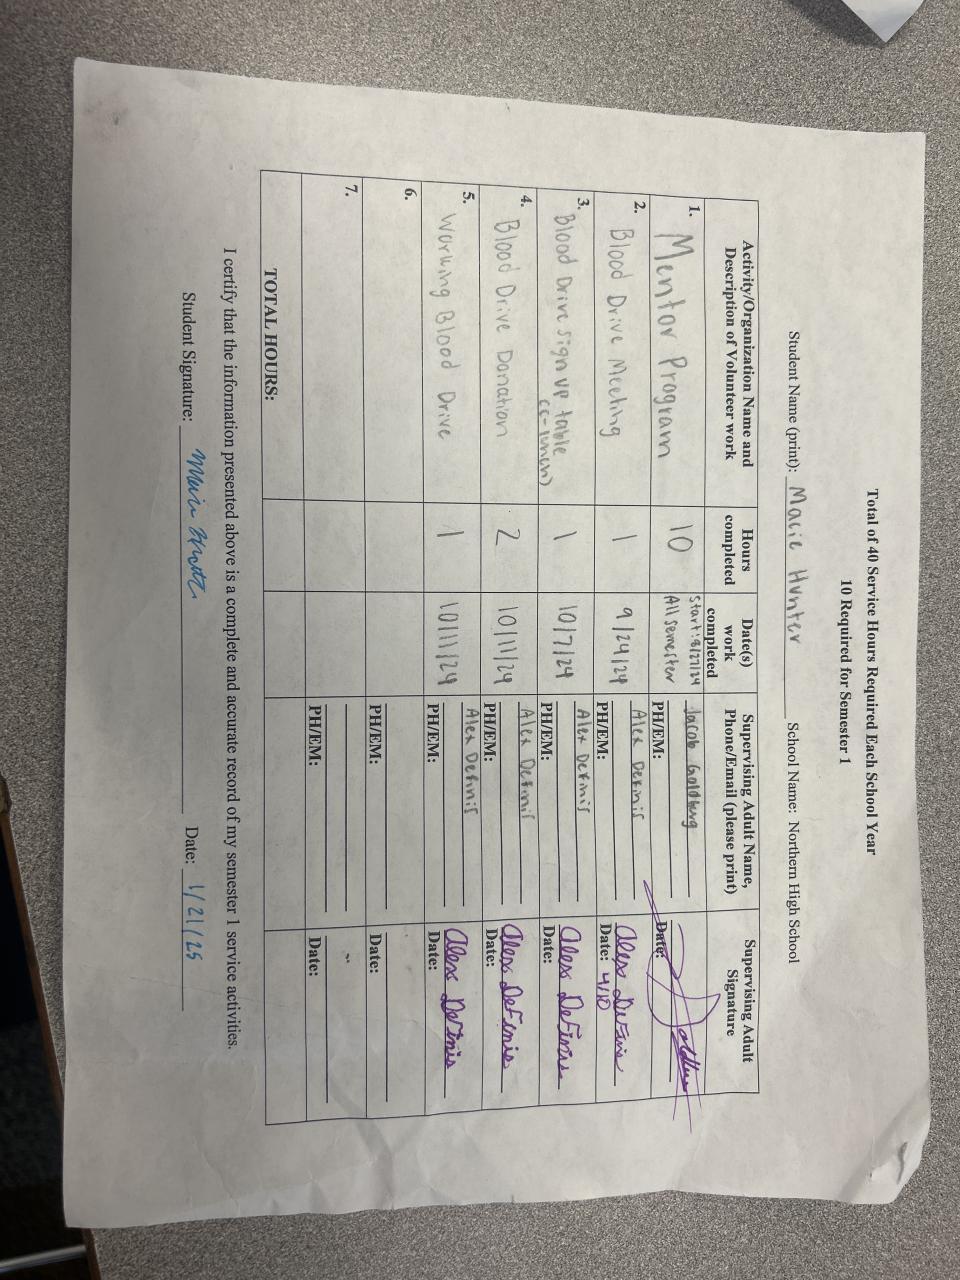 Total of 40 Service Hours Required Each School Year
10 Required for Semester 1
Student Name (print): Macie Hunter School Name: Northern High School
Activity/Organization Name and Description of Volunteer work
Hours completed
Date(s) work completed
Supervising Adult Name, Phone/Email (please print)
Supervising Adult Signature
1. Mentor Program
10
Start: 8/27/24
All semester
Jacob Goldberg
PH/EM:
Date:
2. Blood Drive Meeting
1
9/24/24
Alex
PH/EM:
Alex
Date: 4/10
3. Blood Drive sign up table
1
10/7/24
Alex
PH/EM:
Alex DeFinis
Date:
4. Blood Drive Donation
2
10/11/24
Alex
PH/EM:
Alex DeFinis
Date:
5. Working Blood Drive
1
10/11/24
Alex Definis
PH/EM:
Alex DeFinis
Date:
6.
PH/EM:
Date:
7.
PH/EM:
Date:
TOTAL HOURS:
I certify that the information presented above is a complete and accurate record of my semester 1 service activities.
Student Signature: Date: 1/21/25